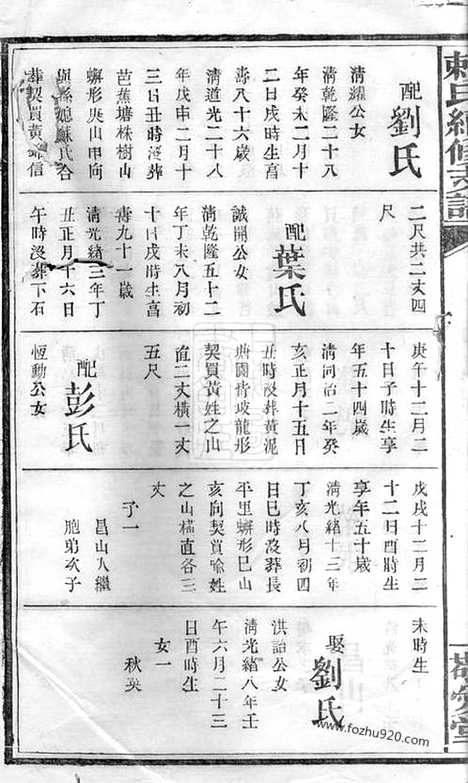 賴氏
配
劉氏
清耀公女
清乾隆二十八
年癸未二月十
二日戌時生享
壽八十六歲
清道光二十八
年戊申二月十
三日丑時沒葬
芭蕉塘株樹山
蠏形艮山申向
與孫媳蘇氏合
葬契買黃
信
二尺共二丈四
尺
配
葉氏
誠開公女
清乾隆五十二
年丁未八月初
十日戌時生享
壽九十一歲
清光緒三年丁
丑正月十六日
午時沒葬下石
庚午十二月二
十日子時生享
年五十四歲
清同治二年癸
亥正月十五日
丑時沒葬黃泥
塘園背坡龍形
契買黃姓之山
直二丈橫一丈
五尺
配
彭氏
恆動公女
戊戌十二月二
十二日酉時生
享年五十歲
清光緒十三年
丁亥八月初四
日巳時沒葬長
平里蠏形巳山
亥向契買喻姓
之山橫直各三
丈
子一
昌山人繼
胞弟次子
未時生
娶
劉氏
洪詒公女
清光緒八年壬
午六月二十三
日酉時生
女一
秋英
堂
www.fozhu920.com